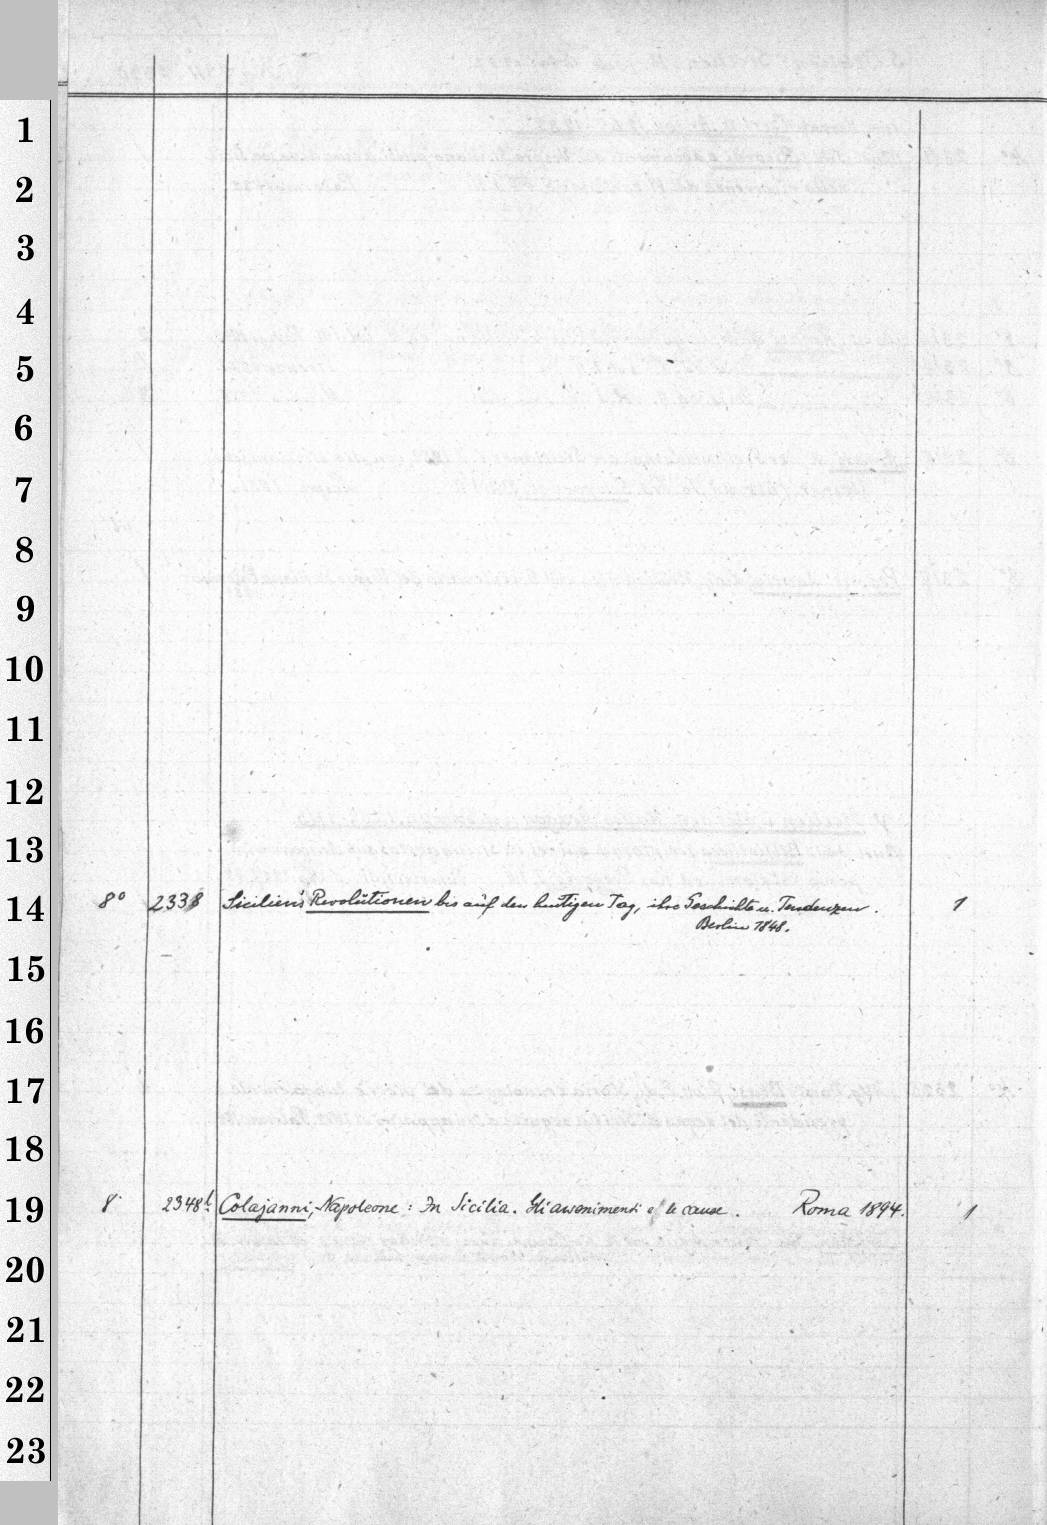 1
2
3
4
5
6
7
8
9
10
11
12
13
14
8° 2338 Sicilien's Revolutionen bis auf den heutigen Tag, ihre Geschichte u. Tendenzen. 1
Berlin 1848.
15
16
17
18
19
8° 2348 Colajanni, Napoleone: In Sicilia. Gli avvenimenti e le cause. Roma 1894. 1
20
21
22
23